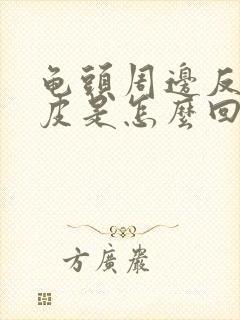 龟頭周邊反
皮是怎麼回
方廣嚴